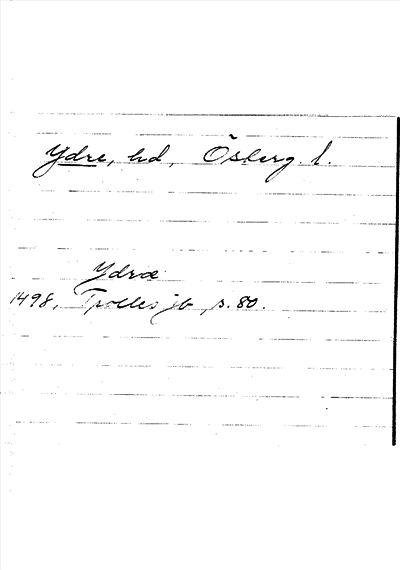 Ydre, hd, Österg. l.
Ydræ
1498, Trolles jb, s. 80.